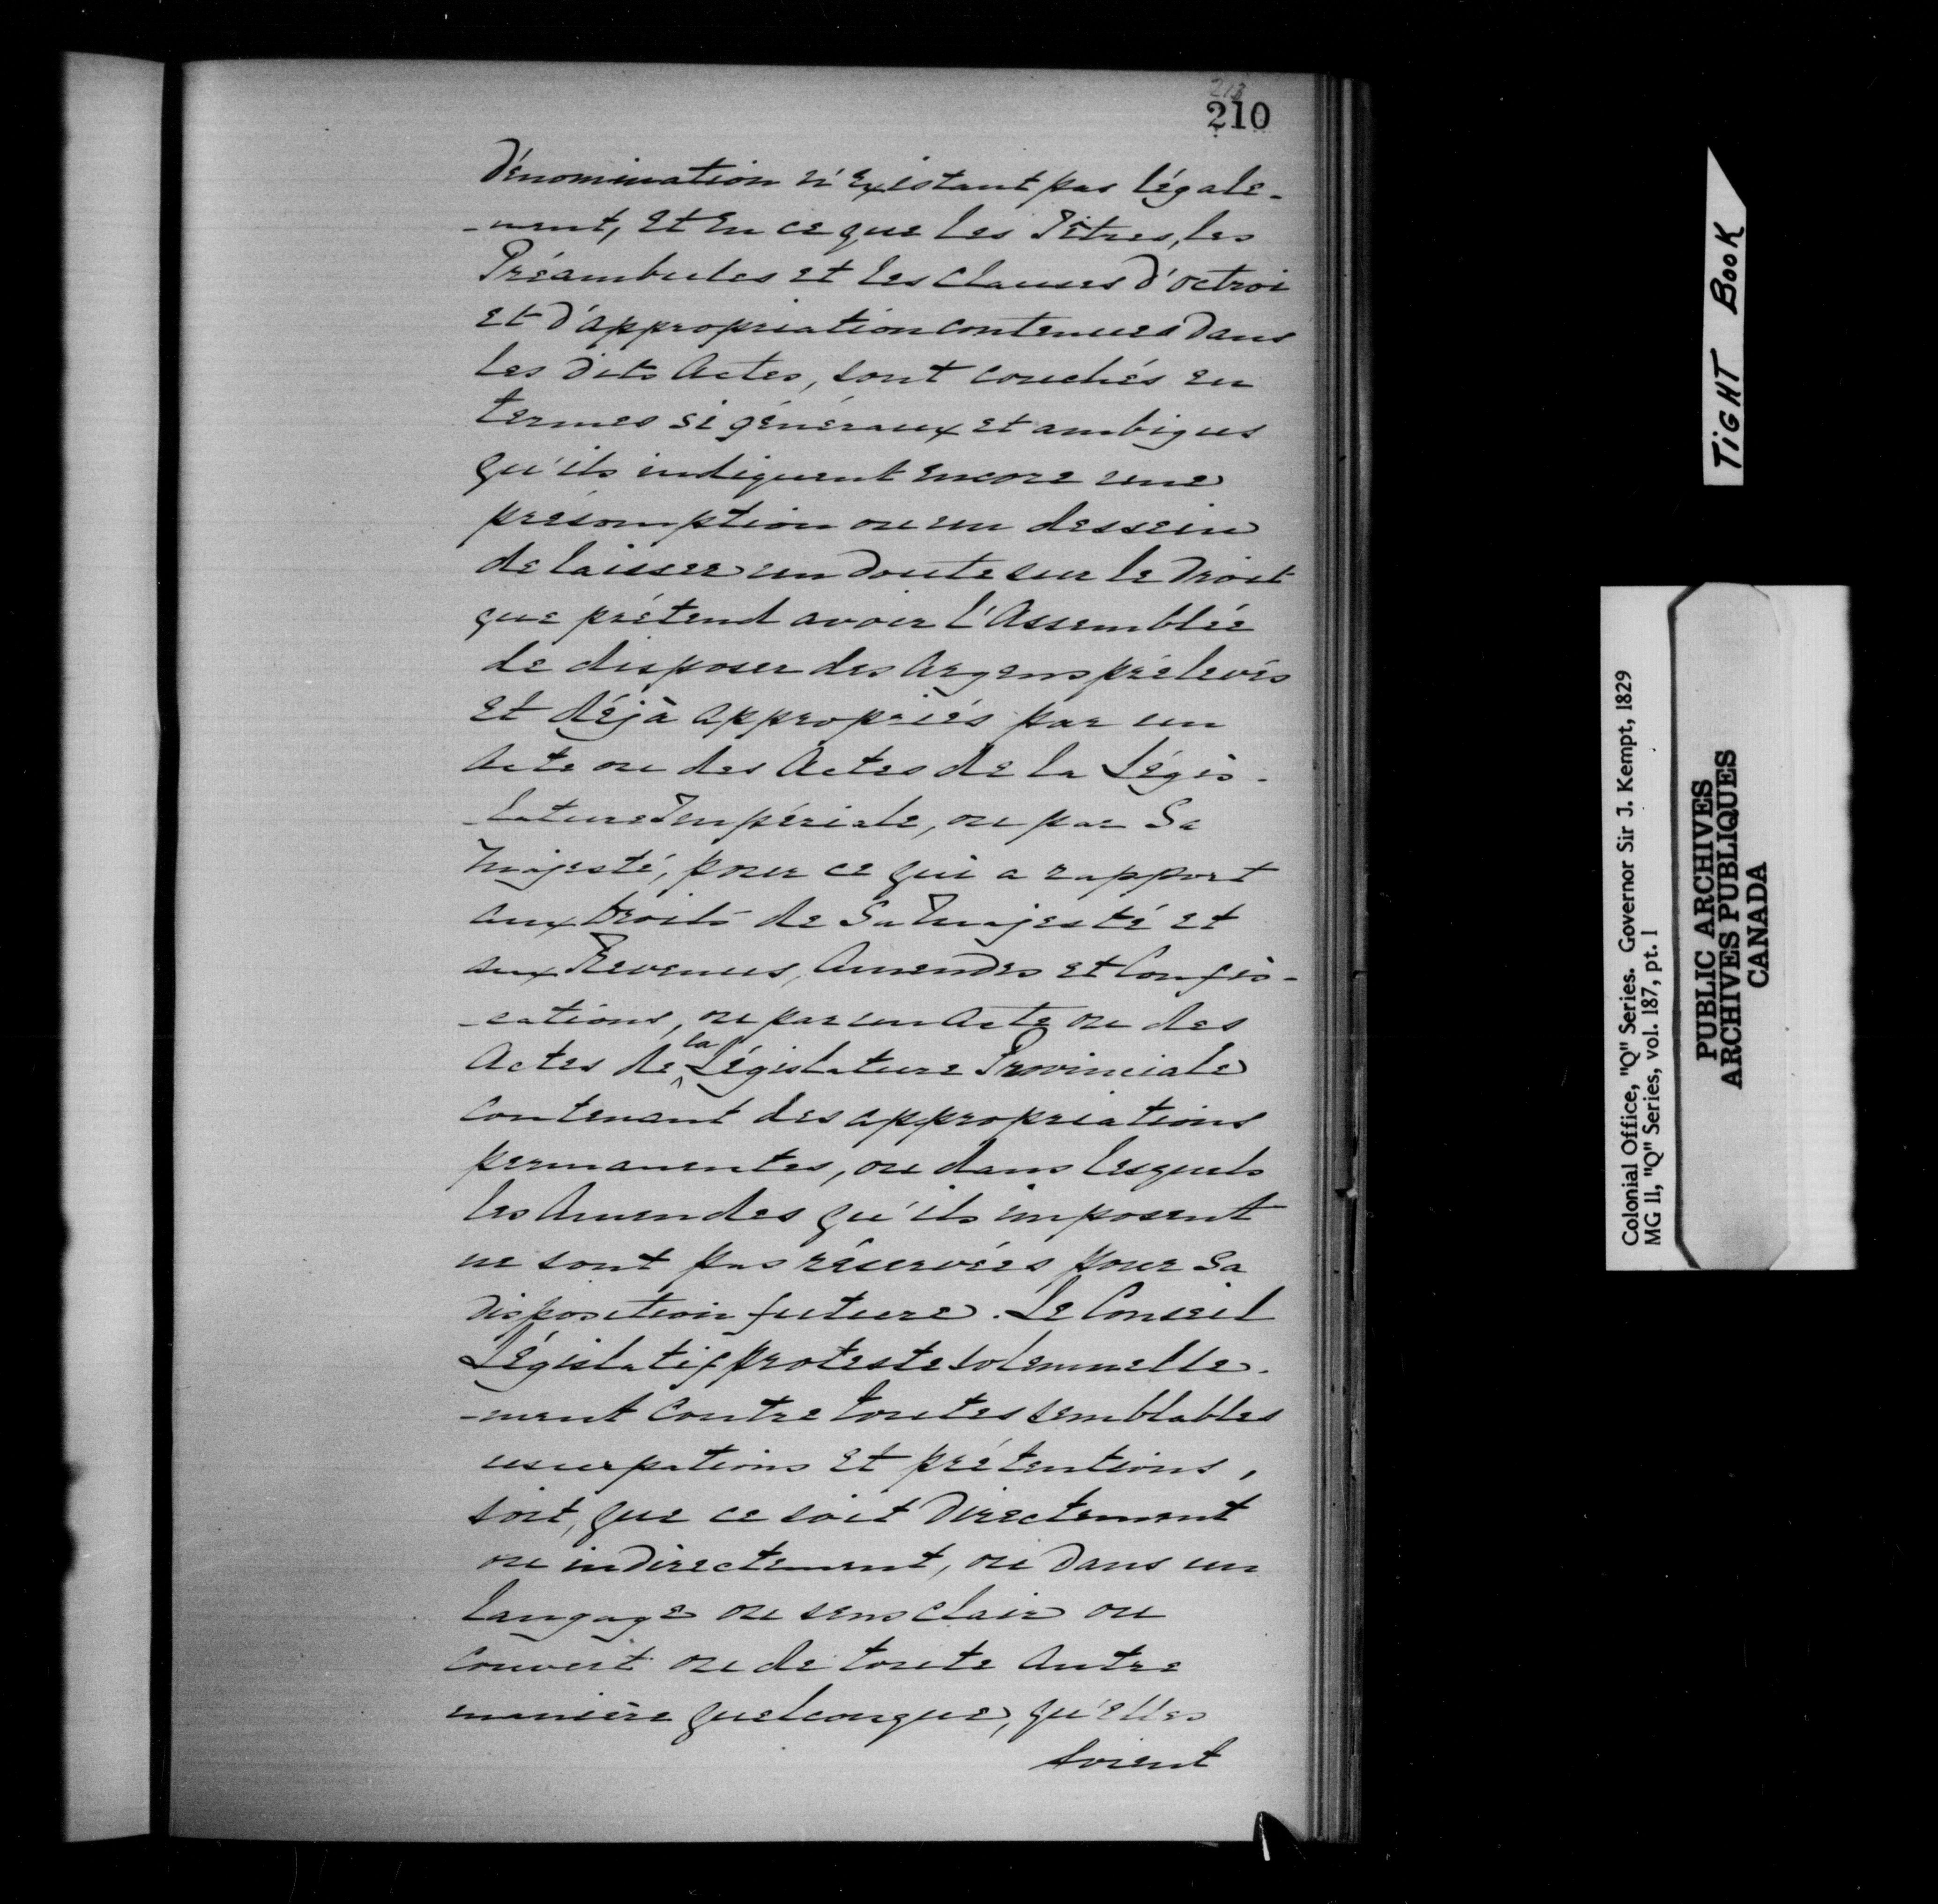 213
210
dénomination n'existant pas légale-
-ment, et en ce que les Titres, les
Préambules et les clauses d'octroi
et d'appropriation contenues dans
les dits Actes, sont couchés en
termes si généraux et ambigus
qu'ils indiquent encore une
présomption ou un dessein
de laisser un doute sur le droit
que prétend avoir l'Assemblée
de disposer des Argens prélevés
et déjà appropriés par un
Acte ou des Actes de la Légis-
-lature Impériale, ou par Sa
Majesté, pour ce qui a rapport
aux droits de Sa Majesté et
aux Revenus, Amendes et Confis-
-cations, ou par un Acte ou des
Actes de la Législature Provinciale
contenant des appropriations
permanentes, ou dans lesquels
les Amendes qu'ils imposent
ne sont pas réservées pour Sa
disposition future. Le Conseil
Législatif proteste solemnelle-
-ment contre toutes semblables
usurpations et prétentions,
soit, que ce soit directement
ou indirectement, ou dans un
langage ou sens clair ou
couvert ou de toute autre
manière quelconque, qu'elles
soient
TIGHT BOOK
Colonial Office, "Q" Series. Governor Sir J. Kempt, 1829
MG 11, "Q" Series, vol. 187, pt. 1
PUBLIC ARCHIVES
ARCHIVES PUBLIQUES
CANADA